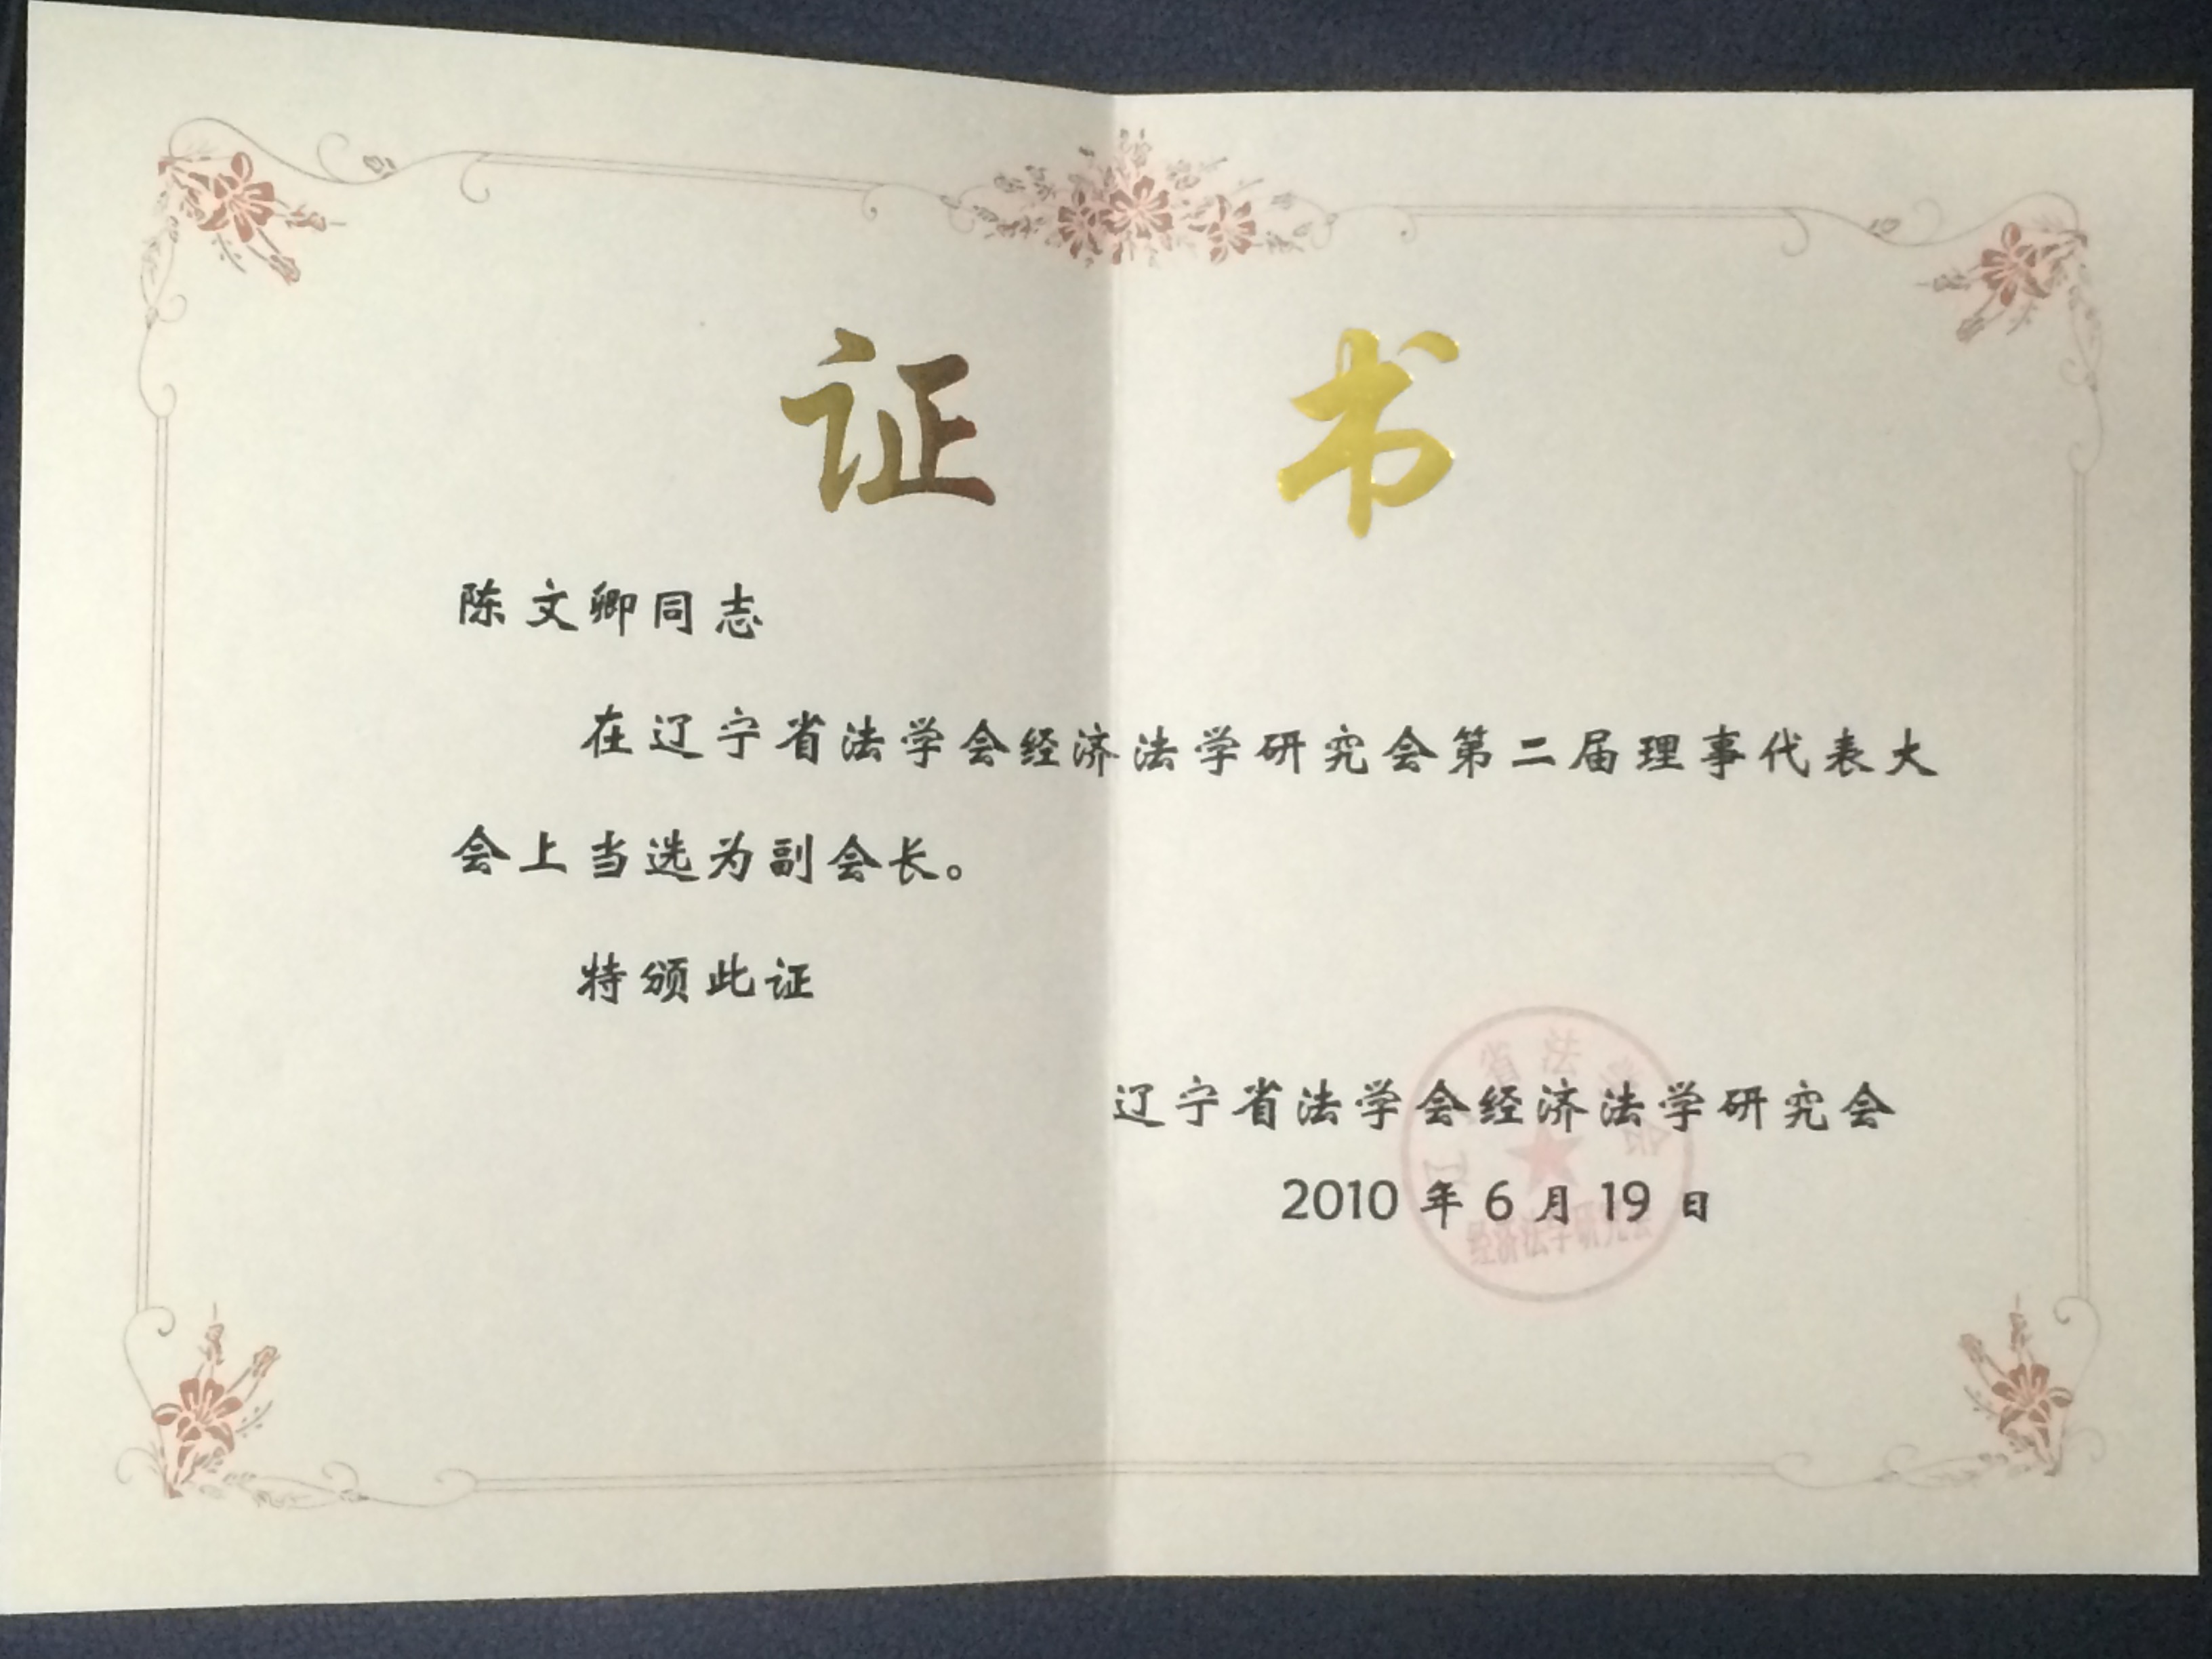 证 书
陈文卿同志
在辽宁省法学会经济法学研究会第二届理事代表大
会上当选为副会长。
特颁此证
辽宁省法学会经济法学研究会
2010 年 6 月 19 日
省法学会
经济法学研究会